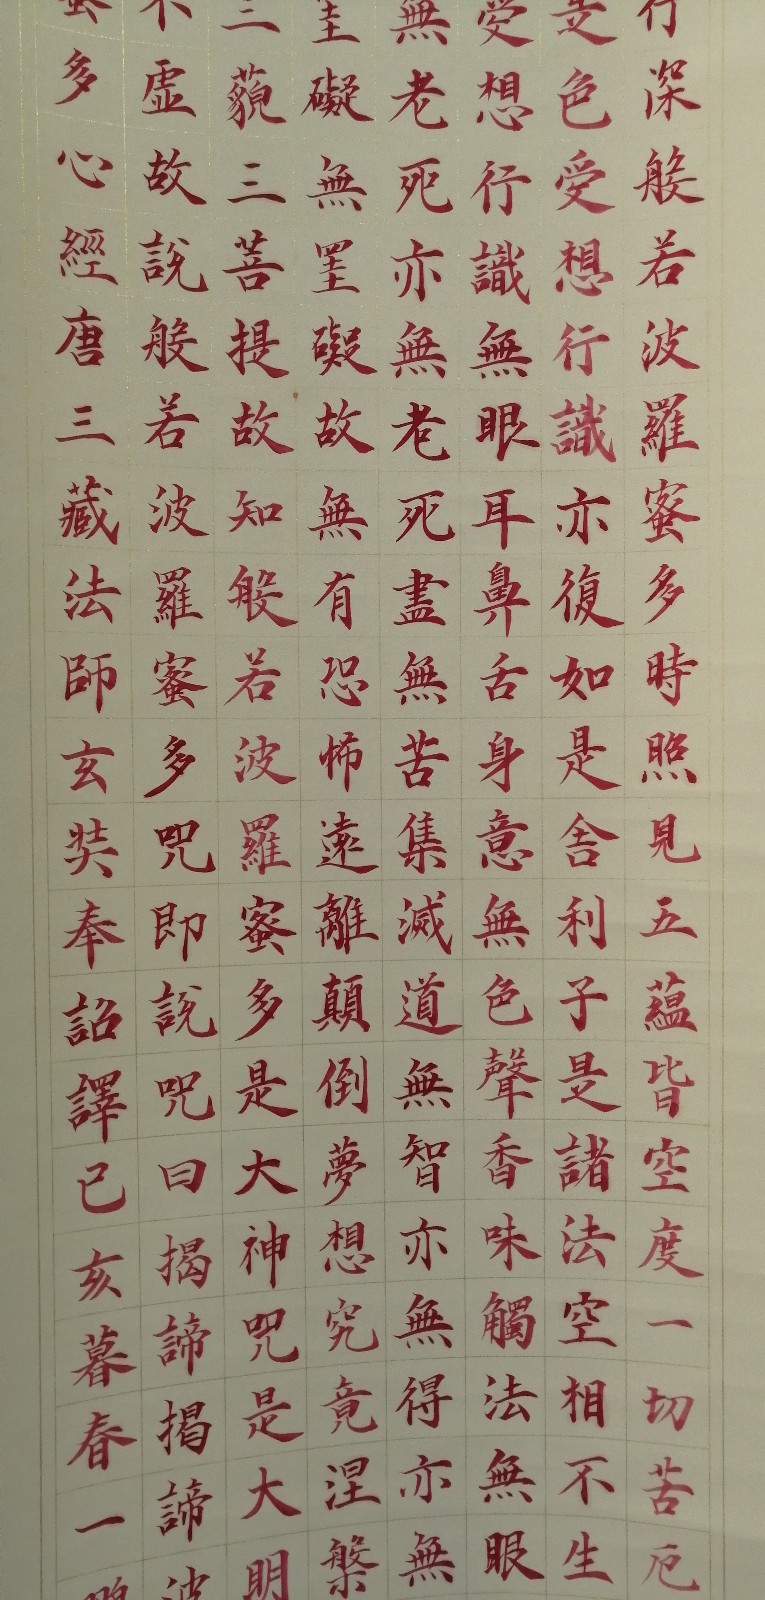 行深般若波羅蜜多時照見五蘊皆空度一切苦厄
是色受想行識亦復如是舎利子是諸法空相不生
受想行識無眼耳鼻舌身意無色聲香味觸法無眼
無老死亦無老死盡無苦集滅道無智亦無得亦無
罣礙無罣礙故無有恐怖遠離顛倒夢想究竟涅槃
三藐三菩提故知般若波羅蜜多是大神咒是大明
不虛故說般若波羅蜜多咒即說咒曰揭諦揭諦波
蜜多心經唐三藏法師玄奘奉詔譯己亥暮春一